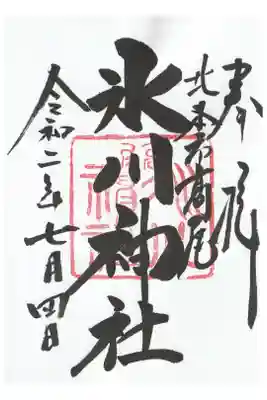 奉拝
北本市高尾
氷川神社
令和二年七月四日